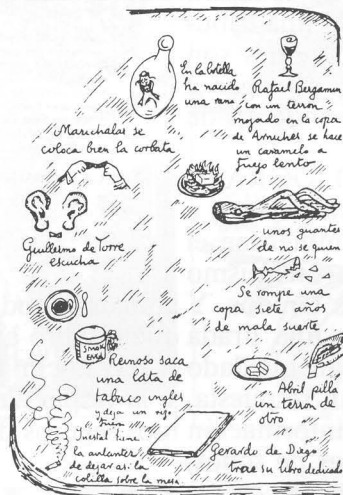 En la botella
ha nacido
una rana
Rafael Bergamin
con un terron
mojado en la copa
de Arniches se hace
un caramelo a
fuego lento
Marichalar se
coloca bien la corbata
Guillermo de Torre
escucha
unos guantes
de no se quien
Se rompe una
copa siete años
de mala suerte
SMOK
Reinoso saca
una lata de
tabaco ingles
y deja un rizo
Abril pilla
un terron de
otro
tiene
la
de dejar asi la
colilla sobre la mesa.
Gerardo de Diego
trae su libro dedicado